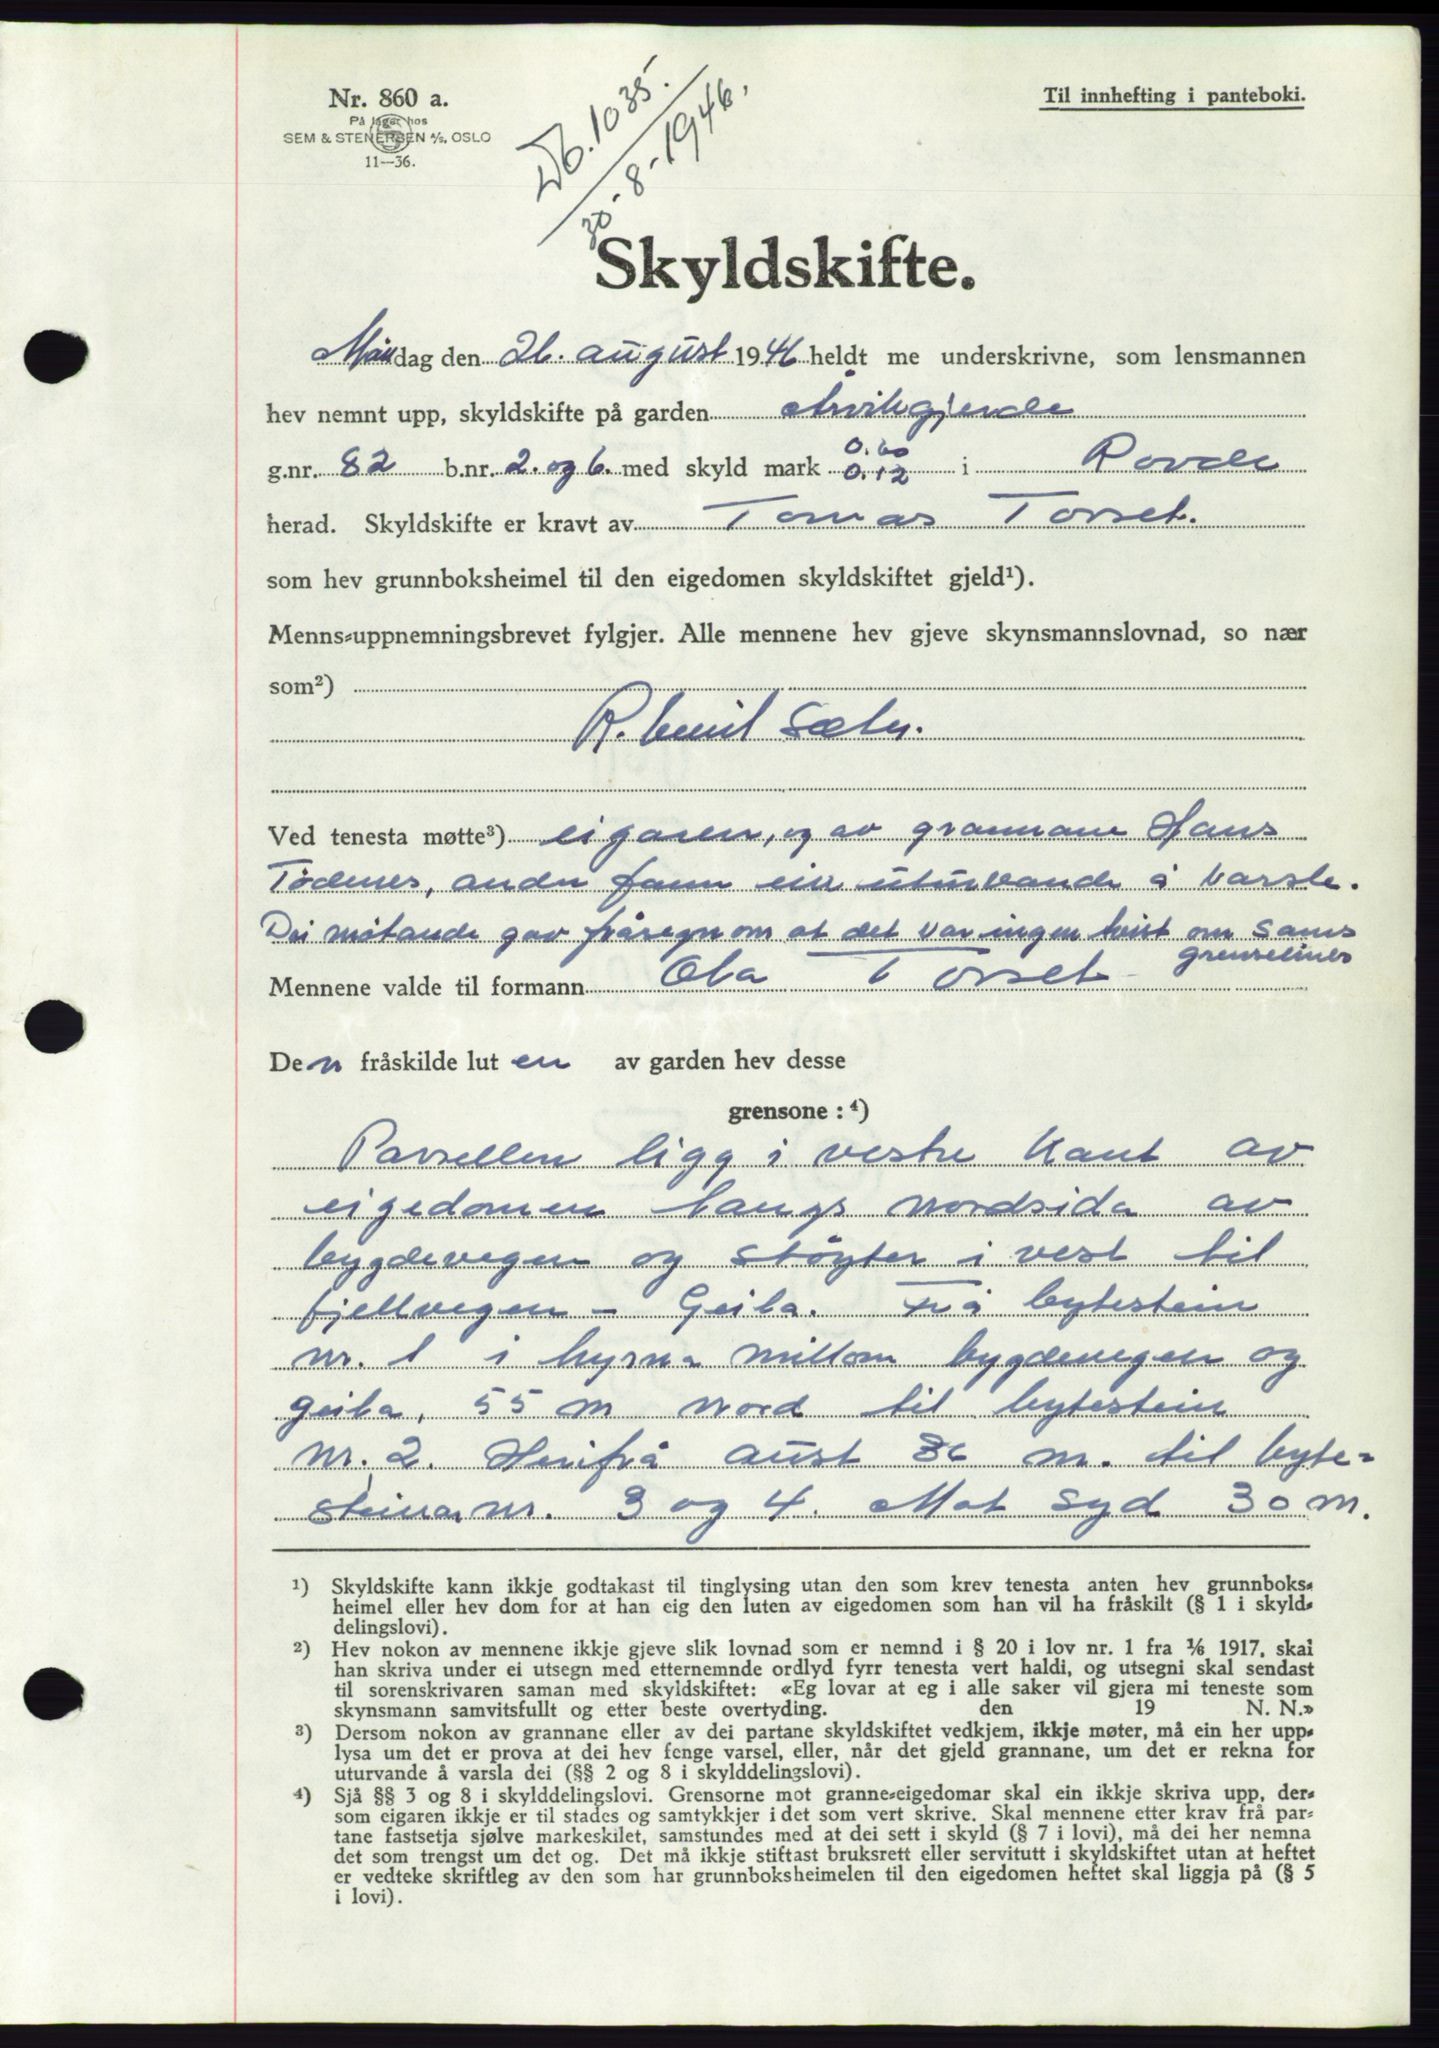 Nr. 860 a.
På lager hos
SEM & STENERSEN A/S, OSLO
11—36.
Til innhefting i panteboki.
Db. 1035.
30-8-1946.
Skyldskifte.
Måndag den 26. august 1946 heldt me underskrivne, som lensmannen
hev nemnt upp, skyldskifte på garden Årvikgjerde
0.60
g.nr. 82 b.nr. 2. og 6. med skyld mark 0.12 i Rovde
herad. Skyldskifte er kravt av Tomas Torset.
som hev grunnboksheimel til den eigedomen skyldskiftet gjeld¹).
Menns-uppnemningsbrevet fylgjer. Alle mennene hev gjeve skynsmannslovnad, so nær
som²)
R. Emil Sæter.
Ved tenesta møtte³) eigaren, og av grannane Hans
Tødenes, andre fann ein uturvande å varsle.
Dei møtande gav fråsegn om at det var ingen tvist om sams
grenselines
Mennene valde til formann Ola Torset
Den fråskilde lut en av garden hev desse
grensone: ⁴)
Parsellen ligg i vestre kant av
eigedomen langs nordsida av
bygdevegen og støyter i vest til
fjellvegen - Geila. Frå bytestein
nr. 1 i hyrna millom bygdevegen og
geila, 55 m nord til bytestein
nr. 2. Herifrå aust 36 m. til byte-
steinar nr. 3 og 4. Mot syd 30 m.
¹) Skyldskifte kann ikkje godtakast til tinglysing utan den som krev tenesta anten hev grunnboks-
heimel eller hev dom for at han eig den luten av eigedomen som han vil ha fråskilt (§ 1 i skyld-
delingslovi).
²) Hev nokon av mennene ikkje gjeve slik lovnad som er nemnd i § 20 i lov nr. 1 fra 1/6 1917, skal
han skriva under ei utsegn med etternemnde ordlyd fyrr tenesta vert haldi, og utsegni skal sendast
til sorenskrivaren saman med skyldskiftet: «Eg lovar at eg i alle saker vil gjera mi teneste som
skynsmann samvitsfullt og etter beste overtyding. den 19 N. N.»
³) Dersom nokon av grannane eller av dei partane skyldskiftet vedkjem, ikkje møter, må ein her upp-
lysa um det er prova at dei hev fenge varsel, eller, når det gjeld grannane, um det er rekna for
uturvande å varsla dei (§§ 2 og 8 i skylddelingslovi).
⁴) Sjå §§ 3 og 8 i skylddelingslovi. Grensorne mot granne-eigedomar skal ein ikkje skriva upp, der-
som eigaren ikkje er til stades og samtykkjer i det som vert skrive. Skal mennene etter krav frå par-
tane fastsetja sjølve markeskilet, samstundes med at dei sett i skyld (§ 7 i lovi), må dei her nemna
det som trengst um det og. Det må ikkje stiftast bruksrett eller servitutt i skyldskiftet utan at heftet
er vedteke skriftleg av den som har grunnboksheimelen til den eigedomen heftet skal liggja på (§ 5
i lovi).